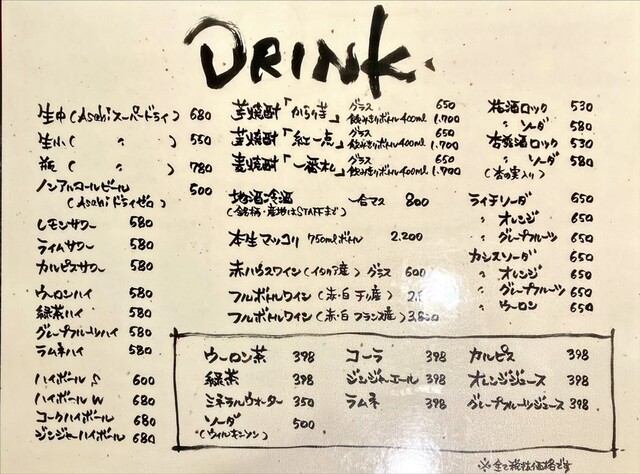 DRINK
生中(Asahiスーパードライ) 680
生小( 〃 ) 550
瓶( 〃 ) 780
ノンアルコールビール 500
(Asahiドライゼロ)
レモンサワー 580
ライムサワー 580
カルピスサワー 580
ウーロンハイ 580
緑茶ハイ 580
グレープフルーツハイ 580
ラムネハイ 580
ハイボール S 600
ハイボール W 680
コークハイボール 680
ジンジャーハイボール 680
芋焼酎「からり芋」 グラス 650
飲みきりボトル400ml 1,700
芋焼酎「紅一点」 グラス 650
飲みきりボトル400ml 1,700
麦焼酎「一番札」 グラス 650
飲みきりボトル400ml 1,700
地酒冷酒 一合マス 800
(銘柄・産地はSTAFFまで)
本生マッコリ 750mlボトル 2.200
赤ハウスワイン(イタリア産) グラス 600
フルボトルワイン(赤・白 チリ産)
フルボトルワイン(赤・白 フランス産)
梅酒ロック 530
〃 ソーダ 580
杏露酒ロック 530
〃 ソーダ 580
(杏の実入り)
ライチソーダ 650
〃 オレンジ 650
〃 グレープフルーツ 650
カシスソーダ 650
〃 オレンジ 650
〃 グレープフルーツ 650
〃 ウーロン 650
ウーロン茶 398
緑茶 398
ミネラルウォーター 350
ソーダ 500
(ウィルキンソン)
コーラ 398
ジンジャーエール 398
ラムネ 398
カルピス 398
オレンジジュース 398
グレープフルーツジュース 398
※全て税抜価格です